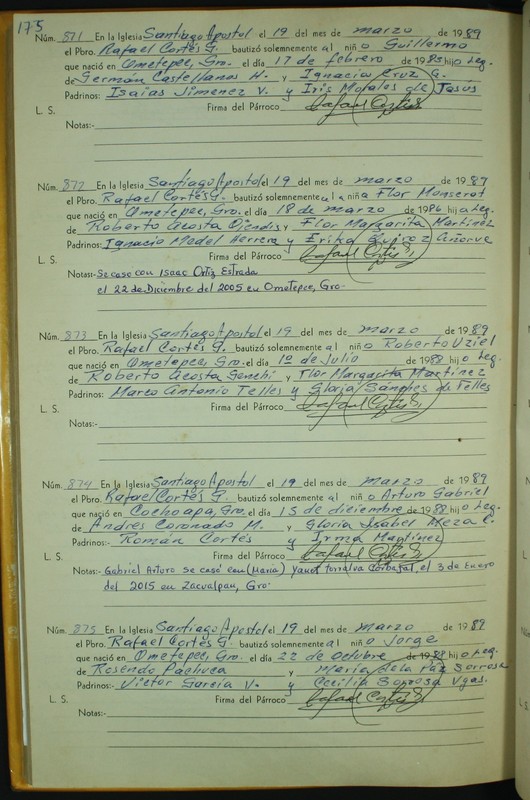 175
Núm. 871 En la Iglesia Santiago Apostol el 19 del mes de marzo de 1989
el Pbro. Rafael Cortés G. bautizó solemnemente al niño Guillermo
que nació en Ometepec, Gro. el día 17 de febrero de 1985 hijo Leg.
de Germán Castellanos H. y Ignacia Cruz G.
Padrinos: Isaias Jimenez V. y Iris Morales de Jesús
L. S. Firma del Párroco
Notas:-
Núm. 872 En la Iglesia Santiago Apostol el 19 del mes de marzo de 1989
el Pbro. Rafael Cortés G. bautizó solemnemente a la niña Flor Monserat
que nació en Ometepec, Gro. el día 18 de marzo de 1986 hija Leg.
de Roberto Acosta y Flor Margarita Martinez
Padrinos: Ignacio Medel Herrera y Erika Quiroz Añorve
L. S. Firma del Párroco
Notas:- Se caso con Isaac Ortiz Estrada
el 22 de Diciembre del 2005 en Ometepec, Gro-
Núm. 873 En la Iglesia Santiago Apostol el 19 del mes de marzo de 1989
el Pbro. Rafael Cortés G. bautizó solemnemente al niño Roberto Uziel
que nació en Ometepec, Gro. el día 1º de Julio de 1988 hijo Leg.
de Roberto Acosta y Flor Margarita Martinez
Padrinos: Marco Antonio Telles y Gloria Sanches de Telles
L. S. Firma del Párroco
Notas:-
Núm. 874 En la Iglesia Santiago Apostol el 19 del mes de marzo de 1989
el Pbro. Rafael Cortés G. bautizó solemnemente al niño Arturo Gabriel
que nació en Cochoapa, Gro. el día 15 de diciembre de 1988 hijo Leg.
de Andres Coronado M. y Gloria Isabel Meza C.
Padrinos:- Román Cortés y Irma Martinez
L. S. Firma del Párroco
Notas:- Gabriel Arturo se casó con (María) Yanet Torralva el 3 de Enero
del 2015 en Zacualpan, Gro-
Núm. 875 En la Iglesia Santiago Apostol el 19 del mes de marzo de 1989
el Pbro. Rafael Cortés G. bautizó solemnemente al niño Jorge
que nació en Ometepec, Gro. el día 22 de Octubre de 1988 hijo Leg.
de Rosendo Pachuca y Maria de la Paz Sorrosa
Padrinos:- Victor Garcia V. y Cecilia Sorrosa Vgas.
L. S. Firma del Párroco
Notas:-